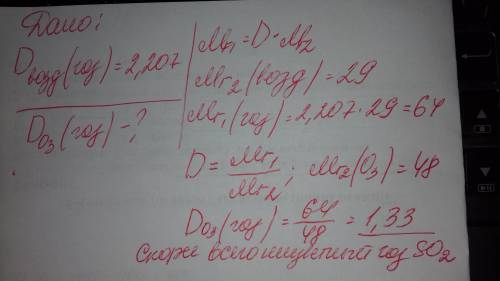 Дано:
Dвозд(газ)=2,207
DO3(газ)-?
Mr1=D·Mr2
Mr2(возд)=29
Mr1(газ)=2,207·29=64
D=Mr1/Mr2; Mr2(O3)=48
DO3(газ)=64/48=1,33
Скорже всего искуемый газ SO2